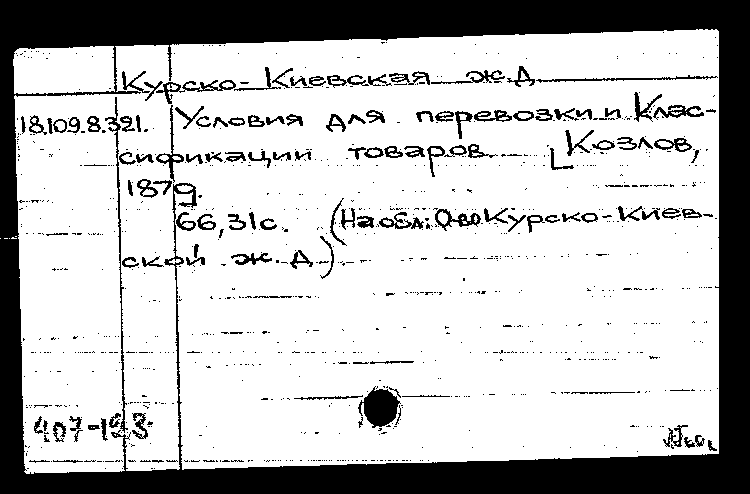 Курско-Киевская ж.д.
18.109.8.321. Условия для перевозки и клас-
сификации товаров. [Козлов,
1879.
66,31с. (На обл: О-во Курско-Киев-
ской ж.д.)
407-123